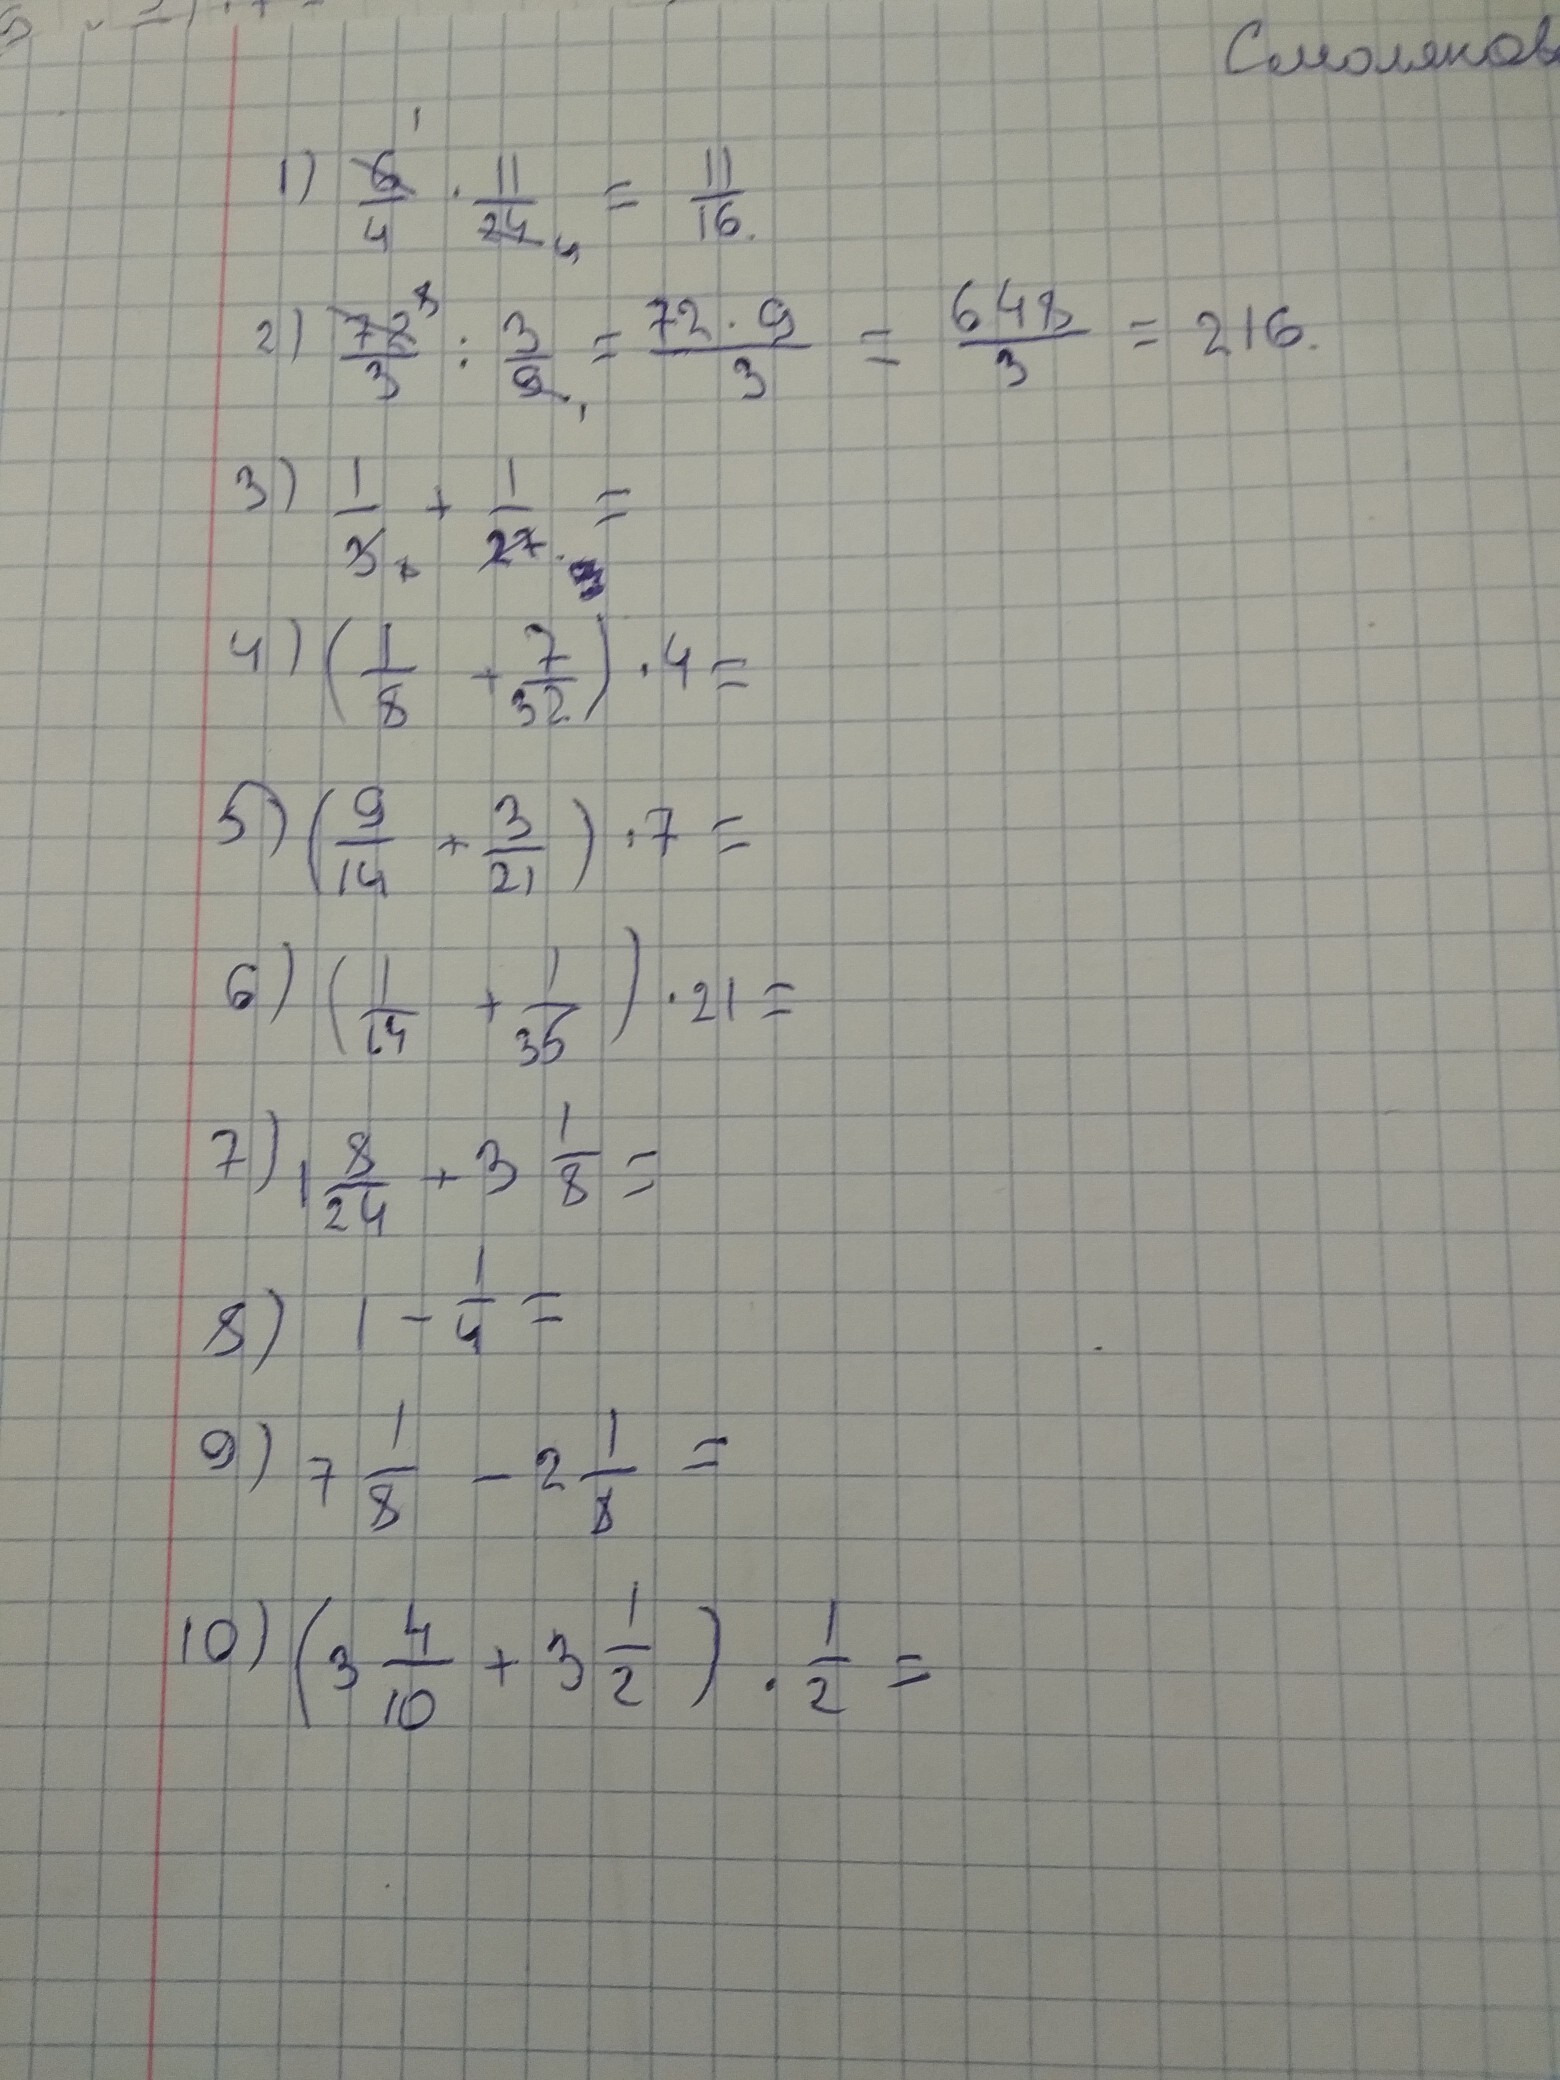 Смоляков
1) 6/4 · 11/24 = 11/16.
2) 72/3 : 3/9 = 72 · 9/3 = 648/3 = 216.
3) 1/3 + 1/27 =
4) (1/8 + 7/32) · 4 =
5) (9/14 + 3/21) · 7 =
6) (1/14 + 1/35) · 21 =
7) 1 8/24 + 3 1/8 =
8) 1 - 1/4 =
9) 7 1/8 - 2 1/8 =
10) (3 4/10 + 3 1/2) · 1/2 =